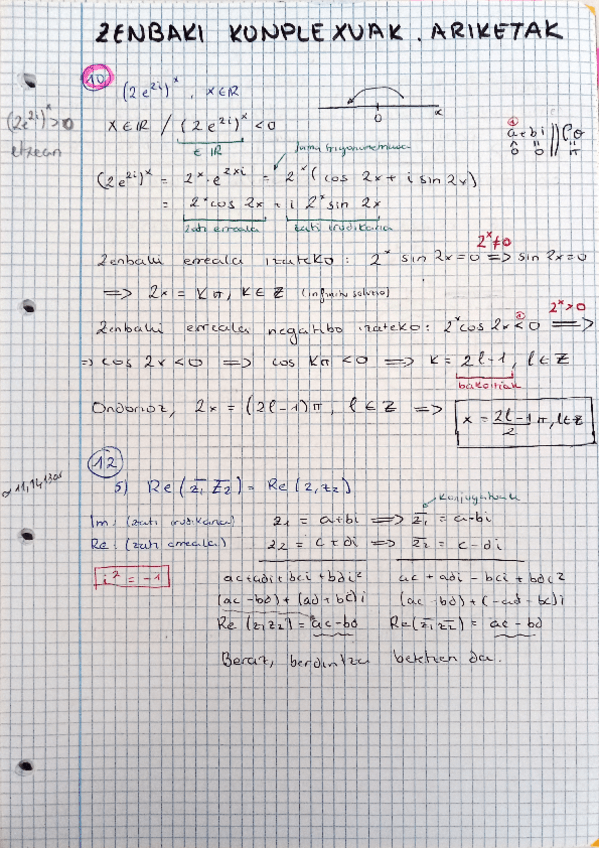 ZENBAKI KONPLEXUAK. ARIKETAK
10 (2e²ⁱ)ˣ, x∈ℝ
(2e²ⁱ)ˣ>0
etxean
x∈ℝ / (2e²ⁱ)ˣ<0
∈ℝ
0 x
a+bi
forma trigonometrikoa
(2e²ⁱ)ˣ = 2ˣ·e²ˣⁱ = 2ˣ(cos 2x + i sin 2x)
= 2ˣcos 2x + i 2ˣsin 2x
zati erreala zati irudikaria
Zenbaki erreala izateko: 2ˣ sin 2x=0 2ˣ≠0 ⟹ sin 2x=0
⟹ 2x = kπ, k∈ℤ (infinitu soluzio)
Zenbaki erreala negatibo izateko: 2ˣcos 2x<0 2ˣ>0 ⟹
⇒ cos 2x <0 ⟹ cos kπ <0 ⟹ k=2l-1, l∈ℤ
bakoitiak
Ondorioz, 2x = (2l-1)π, l∈ℤ ⟹ x = (2l-1)/2 π, l∈ℤ
12
5) Re(z̄₁ z̄₂) = Re(z₁z₂)
konjugatuak
Im: (zati irudikaria) z₁ = a+bi ⟹ z̄₁ = a-bi
Re: (zati erreala) z₂ = c+di ⟹ z̄₂ = c-di
i² = -1
ac+adi+bci+bdi² ac - adi - bci + bdi²
(ac-bd)+(ad+bc)i (ac-bd)+(-ad-bc)i
Re(z₁z₂) = ac-bd Re(z̄₁z̄₂) = ac-bd
Beraz, berdintza betetzen da.